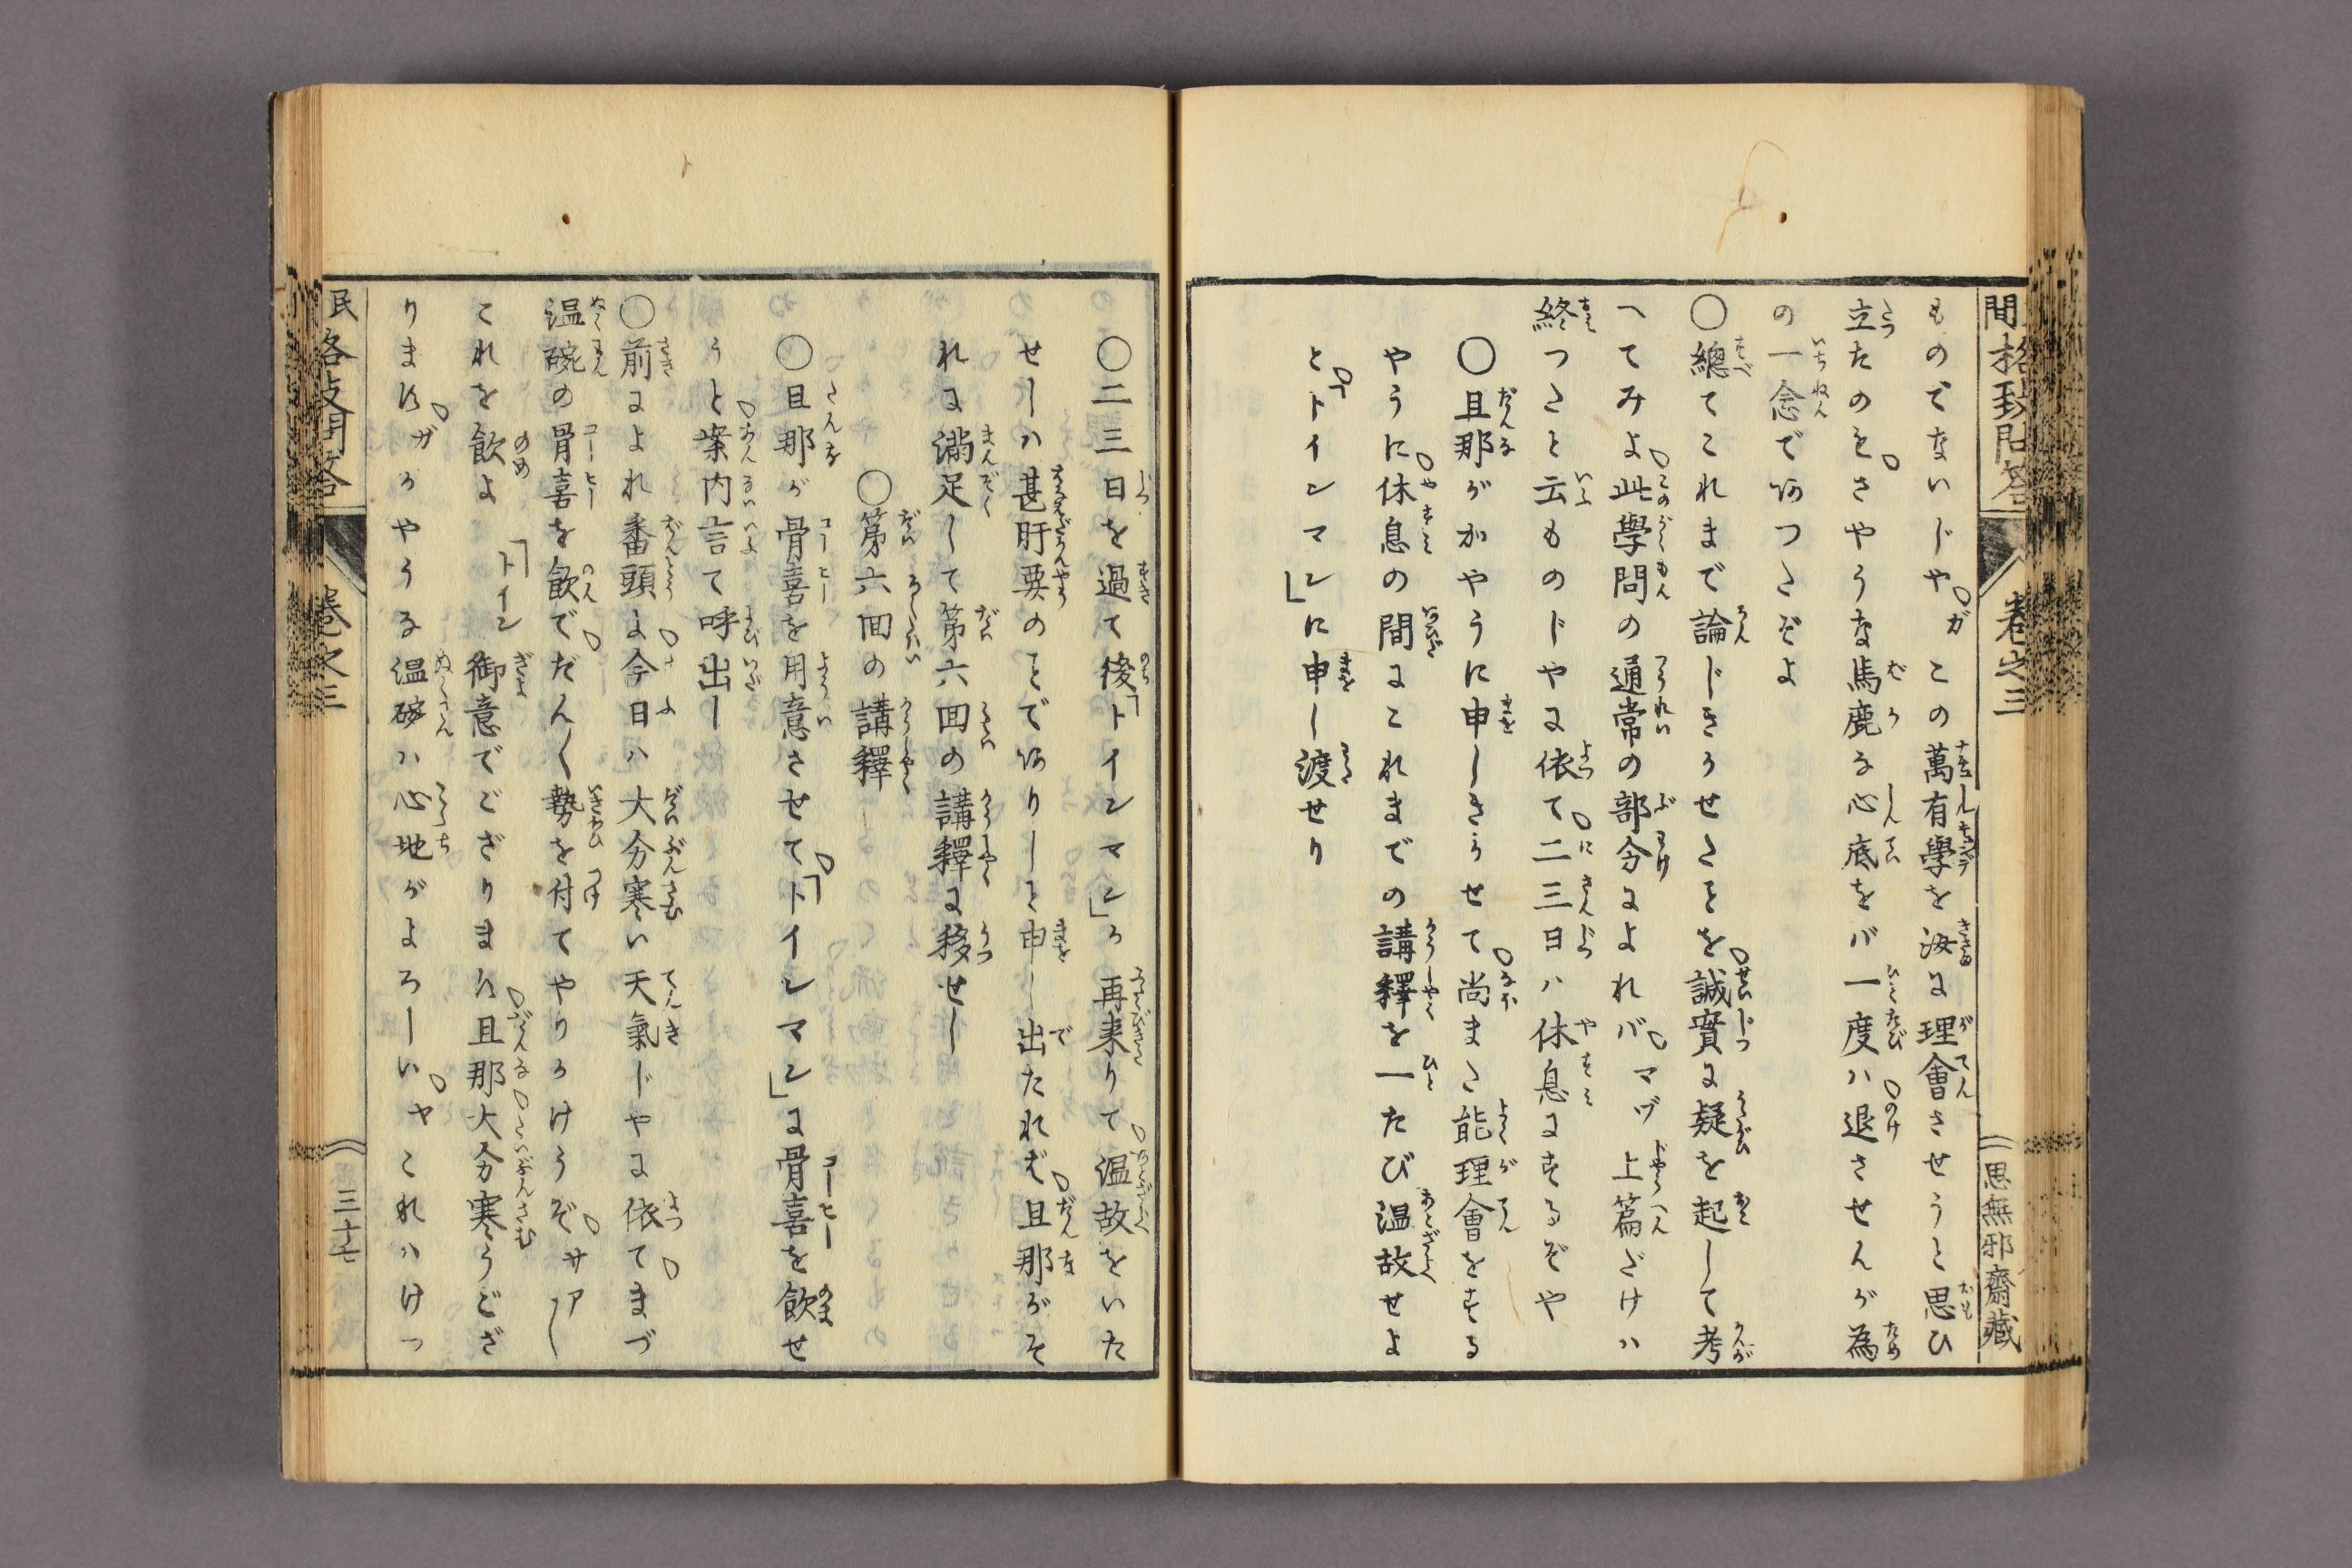 ものでないじや。ガ この萬有學を汝に理會させうと思ひ
立たのを。さやうな馬鹿な心底をバ一度ハ退させんが為
の一念で何つたぞよ
○總てこれまで論じきかせたことを。誠實に疑を起して考
へてみよ。此學問の通常の部分によれバ。マヅ 上篇だけハ
終つたと云ものじやに依て。二三日ハ休息にするぞや
○且那がかやうに申しきかせて。尚また能理會をする
やうに。休息の間にこれまでの講釋を一たび温故せよ
と。「トインマン」に申し渡せり
間格致問答 巻之三 思無邪齋藏
○二三日を過て後「トインマン」か 再来りて。温故をいた
せしハ甚肝要のことでありしと申し出たれば。且那がそ
れに満足して第六回の講釋に移せし
○第六回の講釋
○且那が骨喜を用意させて。「トインマン」に骨喜を飲せ
うと。案内言て呼出し
○前によれ番頭よ。今日ハ大分寒い天氣じやに依て。まづ
温碗の骨喜を飲で。だん〱勢を付てやりかけうぞ。サア〱
これを飲よ 「トイン 御意でござります。且那。大分寒うござ
ります。ガ かやうな温碗ハ心地がよろしい。ヤ これハけつ
民格致問答 巻之三 三十七